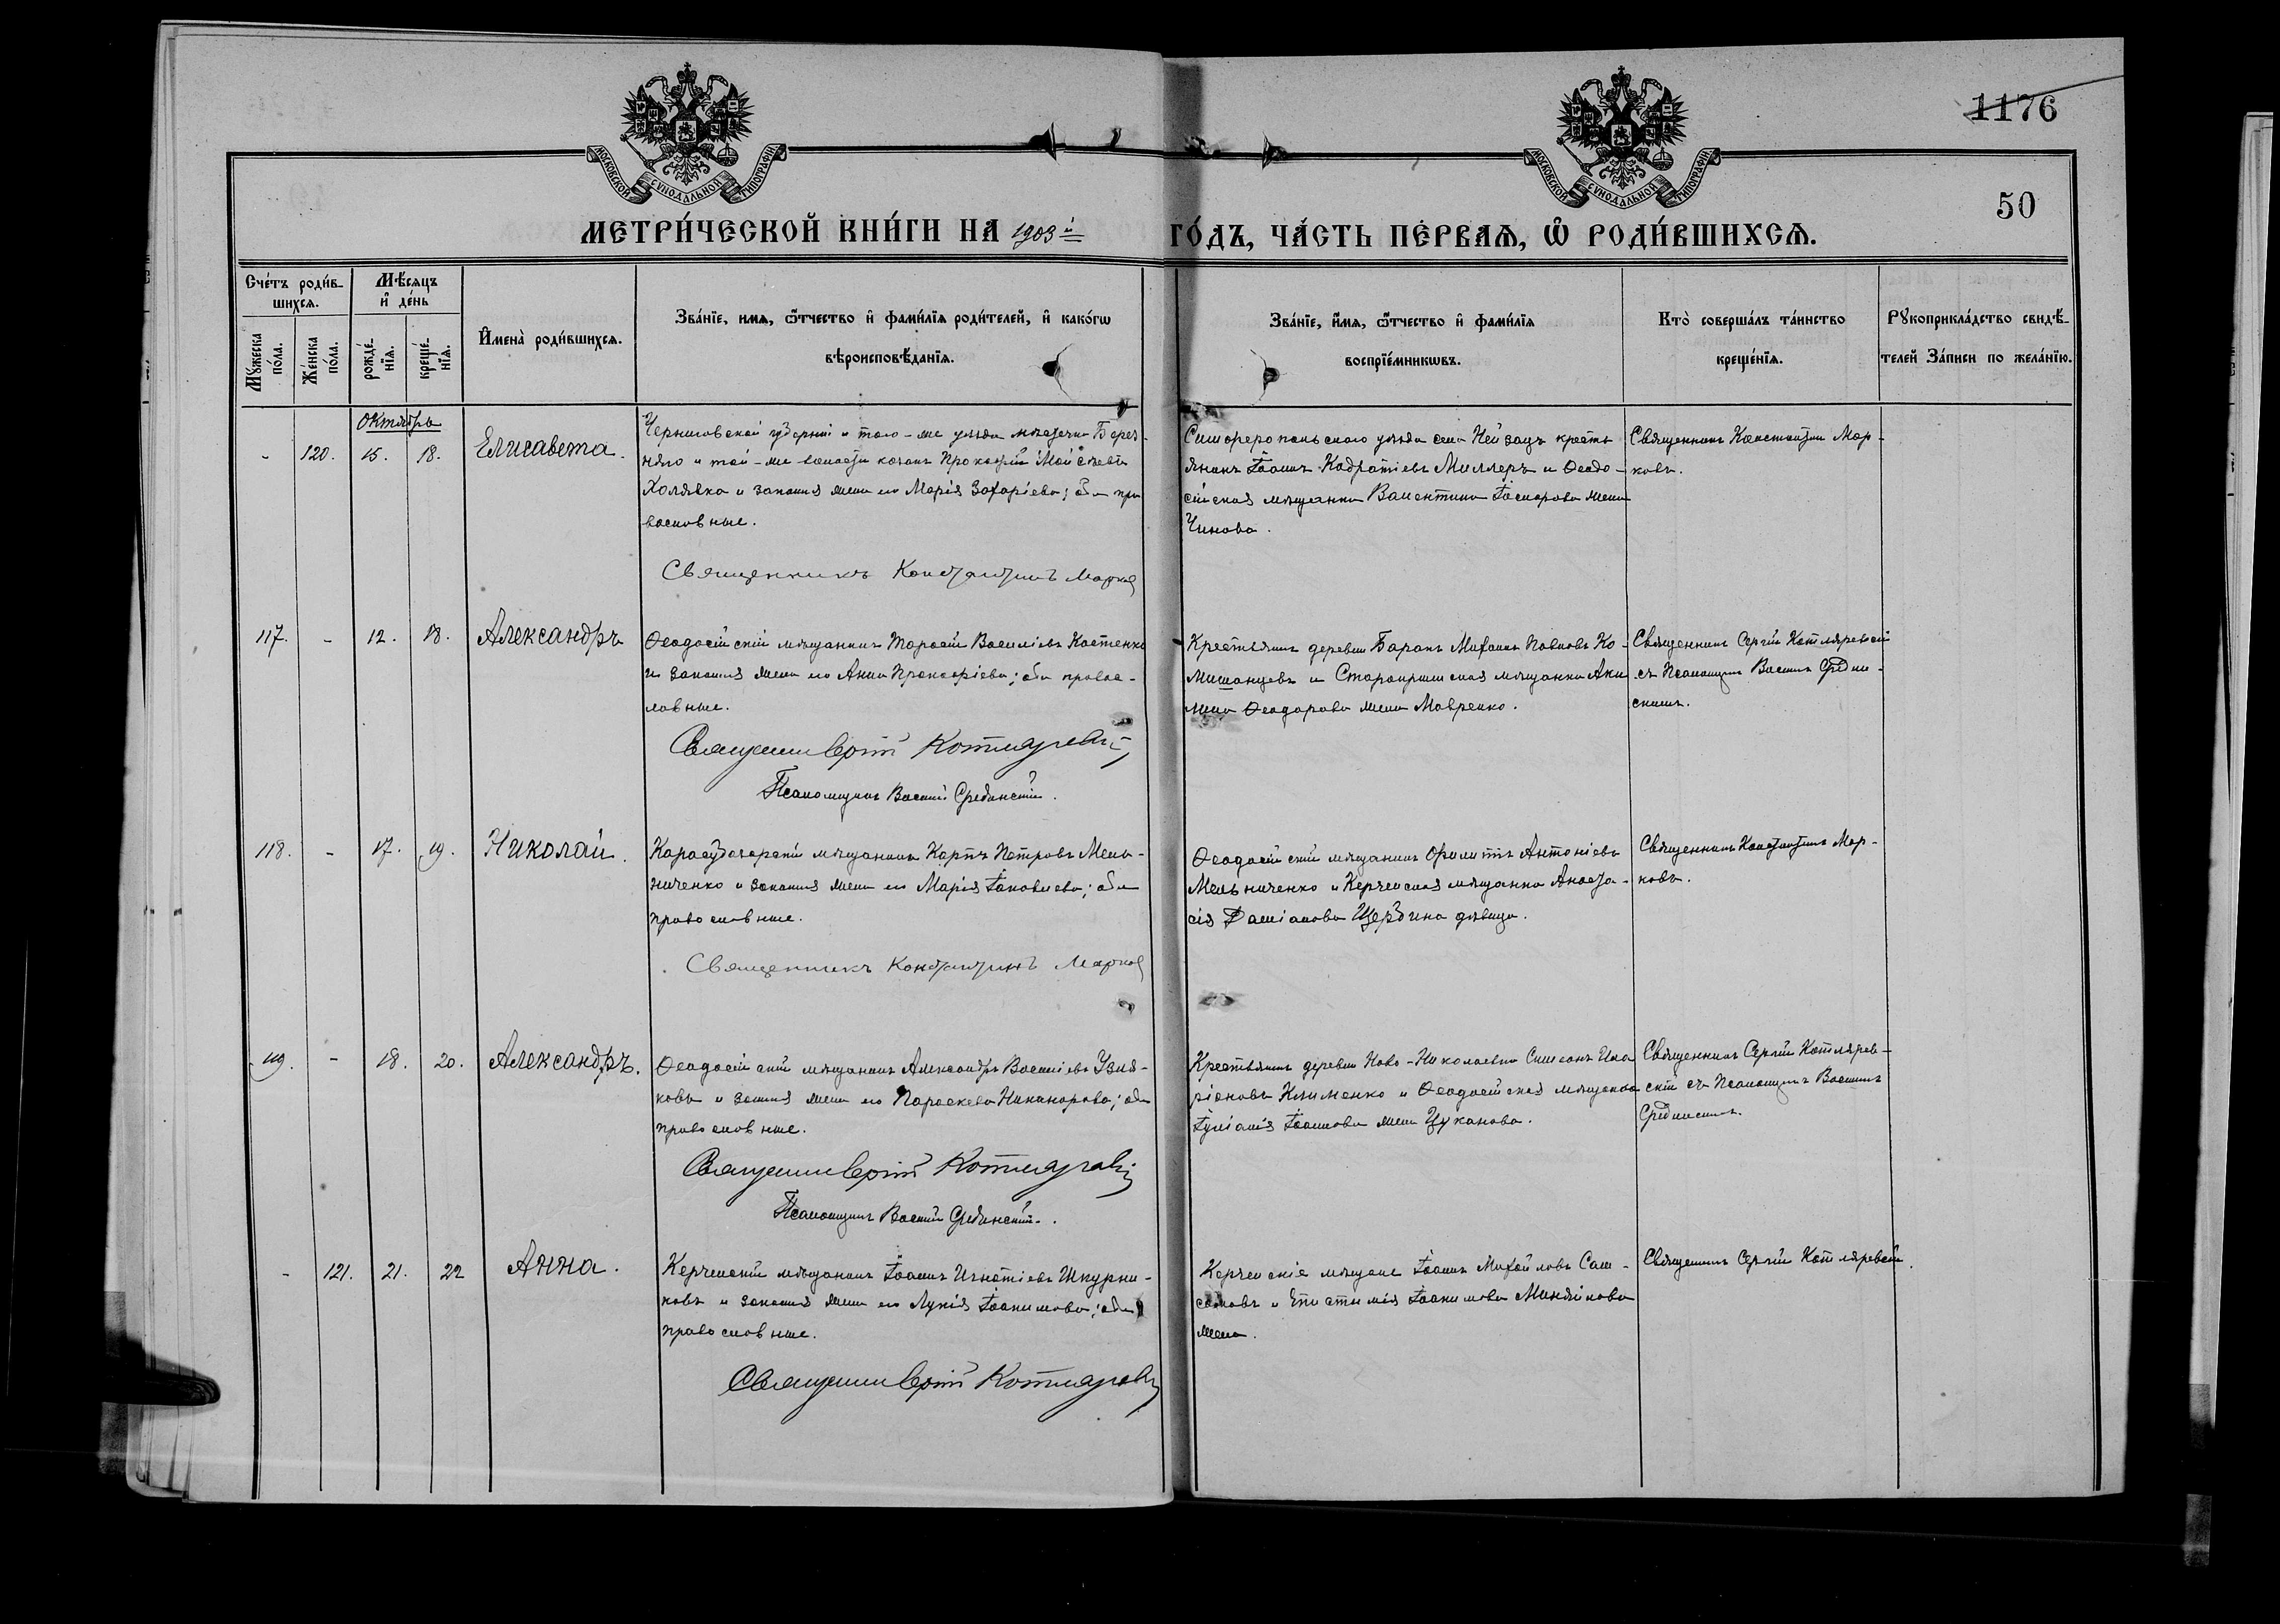 1176
50
МОСКОВСКОЙ СѴНОДАЛЬНОЙ ТИПОГРАФІИ
МОСКОВСКОЙ СѴНОДАЛЬНОЙ ТИПОГРАФІИ
МЕТРИ́ЧЕСКОЙ КНИ́ГИ НА 1903й ГО́ДЪ, ЧА́СТЬ ПЕ́РВАѦ, Ѽ РОДИ́ВШИХСѦ.
Сче́тъ роди́в-
шихсѧ.
Мꙋ́жеска по́ла.
Же́нска по́ла.
Мѣ́сяцъ и҆ де́нь
рожде́-нїѧ.
креще́-нїѧ.
И҆мена̀ роди́вшихсѧ.
Зва́нїе, имѧ, ѻ҆́тчество и҆ фами́лїѧ роди́телей, и҆ како́гѡ
вѣроисповѣ́данїѧ.
Зва́нїе, и҆́мѧ, ѻ҆́тчество и҆ фами́лїѧ
воспрїе́мникѡвъ.
Кто̀ соверша́лъ та́инство
креще́нїѧ.
Рꙋкоприкла́дство свидѣ́-
телей За́писи по жела́нїю.
Октябрь
- 120. 15. 18. Елисавета.
Черниговской губерніи и того-же уѣзда мѣстечка Берез-
наго и той-же волости казакъ Прокофій Моисеевъ
Холявко и законная жена его Марія Захаріева; оба пра
вославные.
Священникъ Константинъ Марков
Симферопольскаго уѣзда села Нейзацъ кресть
янинъ Іоаннъ Кодратіевъ Миллеръ и Ѳеодо-
сійская мѣщанка Валентина Іасонова жена
Чинова.
Священникъ Константинъ Мар-
ковъ.
117. - 12. 18. Александръ
Ѳеодосійскій мѣщанинъ Тарасій Василіевъ Костенко
и законная жена его Анна Прокофіева; оба правос-
лавные.
Священникъ Сергій Котляревскій
Псаломщикъ Василій Срединскій.
Крестьянинъ деревни Баракъ Михаилъ Павловъ Ко-
Мишанцевъ и Старокрымская мѣщанка Аки
лина Ѳеодорова жена Мавренко.
Священникъ Сергій Котляревскій
съ Псаломщик Васил Средин-
скимъ.
118. - 17. 19. Николай.
Карасубазарскій мѣщанинъ Карпъ Петровъ Мель-
ниченко и законная жена его Марія Іаковлева; оба
православные.
Священникъ Константинъ Марков
Ѳеодосійскій мѣщанинъ Филиппъ Антоніевъ
Мельниченко и Керченская мѣщанка Анаста-
сія Даміанова Щербина дѣвица.
Священникъ Константинъ Мар-
ковъ.
119. - 18. 20. Александръ.
Ѳеодосійскій мѣщанинъ Александръ Василіевъ
ковъ и законная жена его Параскева Никанорова; оба
православные.
Священникъ Сергій Котляревскій
Псаломщикъ Василій Срединскій.
Крестьянинъ деревни Ново-Николаевки Симеонъ Ила
ріоновъ Клименко и Ѳеодосійская мѣщанка
Іуліанія Іоаннова жена Цуканова.
Священникъ Сергій Котлярев-
скій съ Псаломщик Василіемъ
Срединскимъ.
- 121. 21. 22 Анна.
Керченскій мѣщанинъ Іоаннъ Игнатіевъ Шкурни-
ковъ и законная жена его Лукія Іоакимова; оба
православные.
Священникъ Сергій Котляревскій
Керченскіе мѣщане Іоаннъ Михайловъ Сам-
соновъ и Епистимія Іоакимова Миндикова
жена.
Священникъ Сергій Котляревскій.